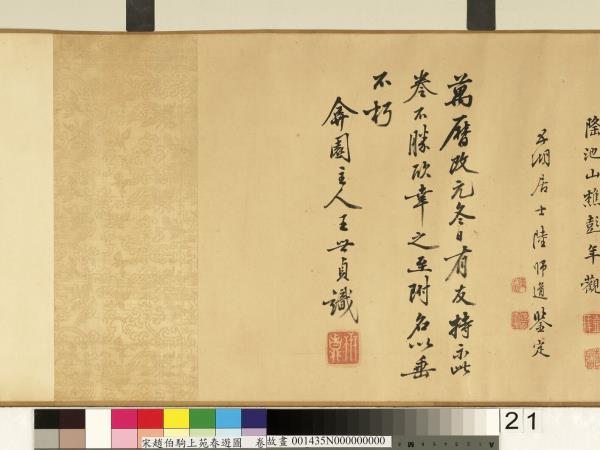 隆池山樵彭年觀
五湖居士陸師道鑒定
萬曆改元冬日有友持示此
卷不勝欣幸之至附名以垂
不朽
弇園主人王世貞識
宋趙伯駒上苑春遊圖 卷 故畫 001435N000000000
21